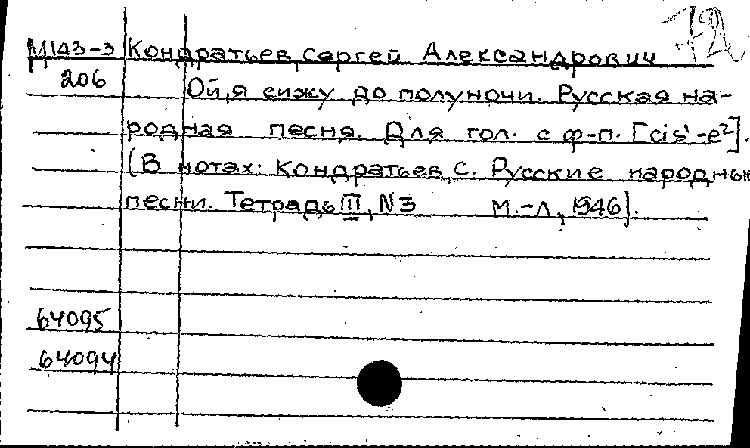 12
М143-3 Кондратьев, Сергей Александрович
206 Ой, я сижу до полуночи. Русская на-
родная песня. Для гол. с ф-п. [cis¹-e²].
(В нотах: Кондратьев, С. Русские народные
песни. Тетрадь III, N3 М.-Л., 1946).
64095
64094